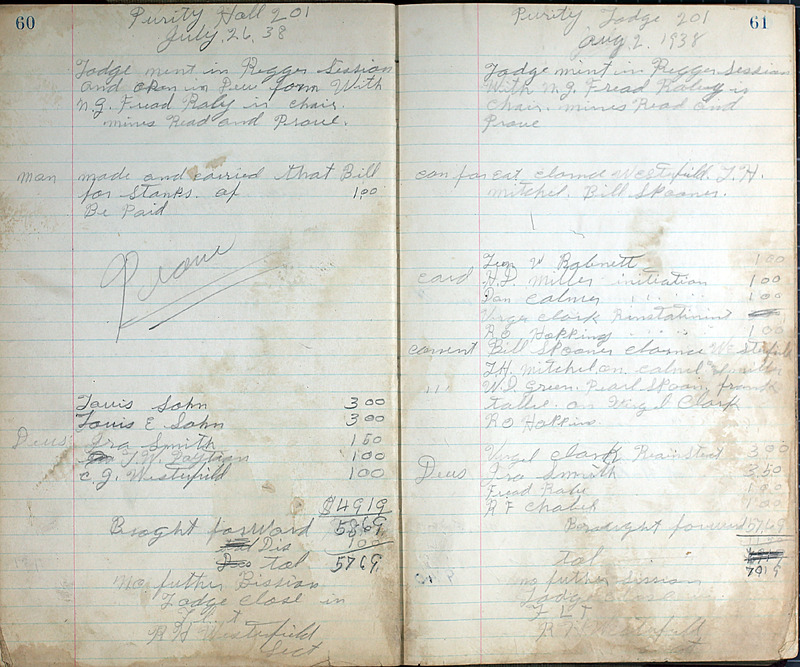 60
Purity Hall 201
July. 26, 38
Lodge ment in Regger Session
and open in Deu form With
N.G. Fread Raby in chair.
mines Read and Prove.
man made and carried that Bill
for Stanps. of 1.00
Be Paid
Prove
Louis Sohn 3 00
Louis E Sohn 3 00
Deus Ira Smith 1 50
J.W. 1 00
C. J. Westefield 1 00
$49 19
Brought forward 58 69
Dis 1 00
tal 57 69
No futher Bission
Lodge Close in
F L T
R H Westefield
Sect
61
Purity Lodge 201
Aug 2. 1938
Lodge ment in Regger Session
With N.G. Fread Raby in
Chair. mines Read and
Prove
clarnce Westefild. T.H.
mitchel. Bill Spooner.
W Robnett 1 00
card H.L. Miller initiation 1 00
Dan Calmer " " " 1 00
Virgel Clark Rinstatinint
RO Hopking " " " 1 00
coment Bill Spooner clarnce Westefild
T.H. Mitchel on. calmer
" " " W.I. Green. Pearl Spoon, frank
on Virgel Clark
RO Hopkins.
Virgel clark Reinstect 3 00
Deus Ira Smith 3 50
Fread Raby
R F
Brought forward 57 69
tal 70 19
no futher Session
Lodge Close in
F L T
R H Westefield